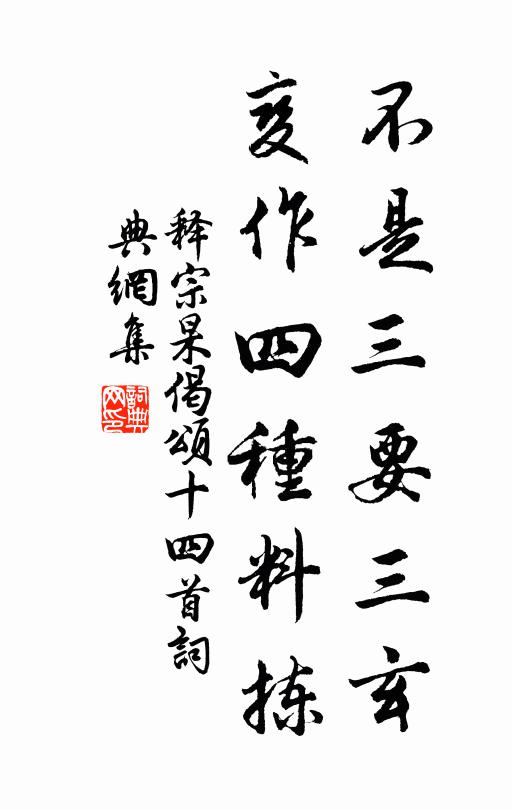 不是三要三玄
变作四種料拣
释宗杲偈頌十四首詞
典網集
詞典
网印